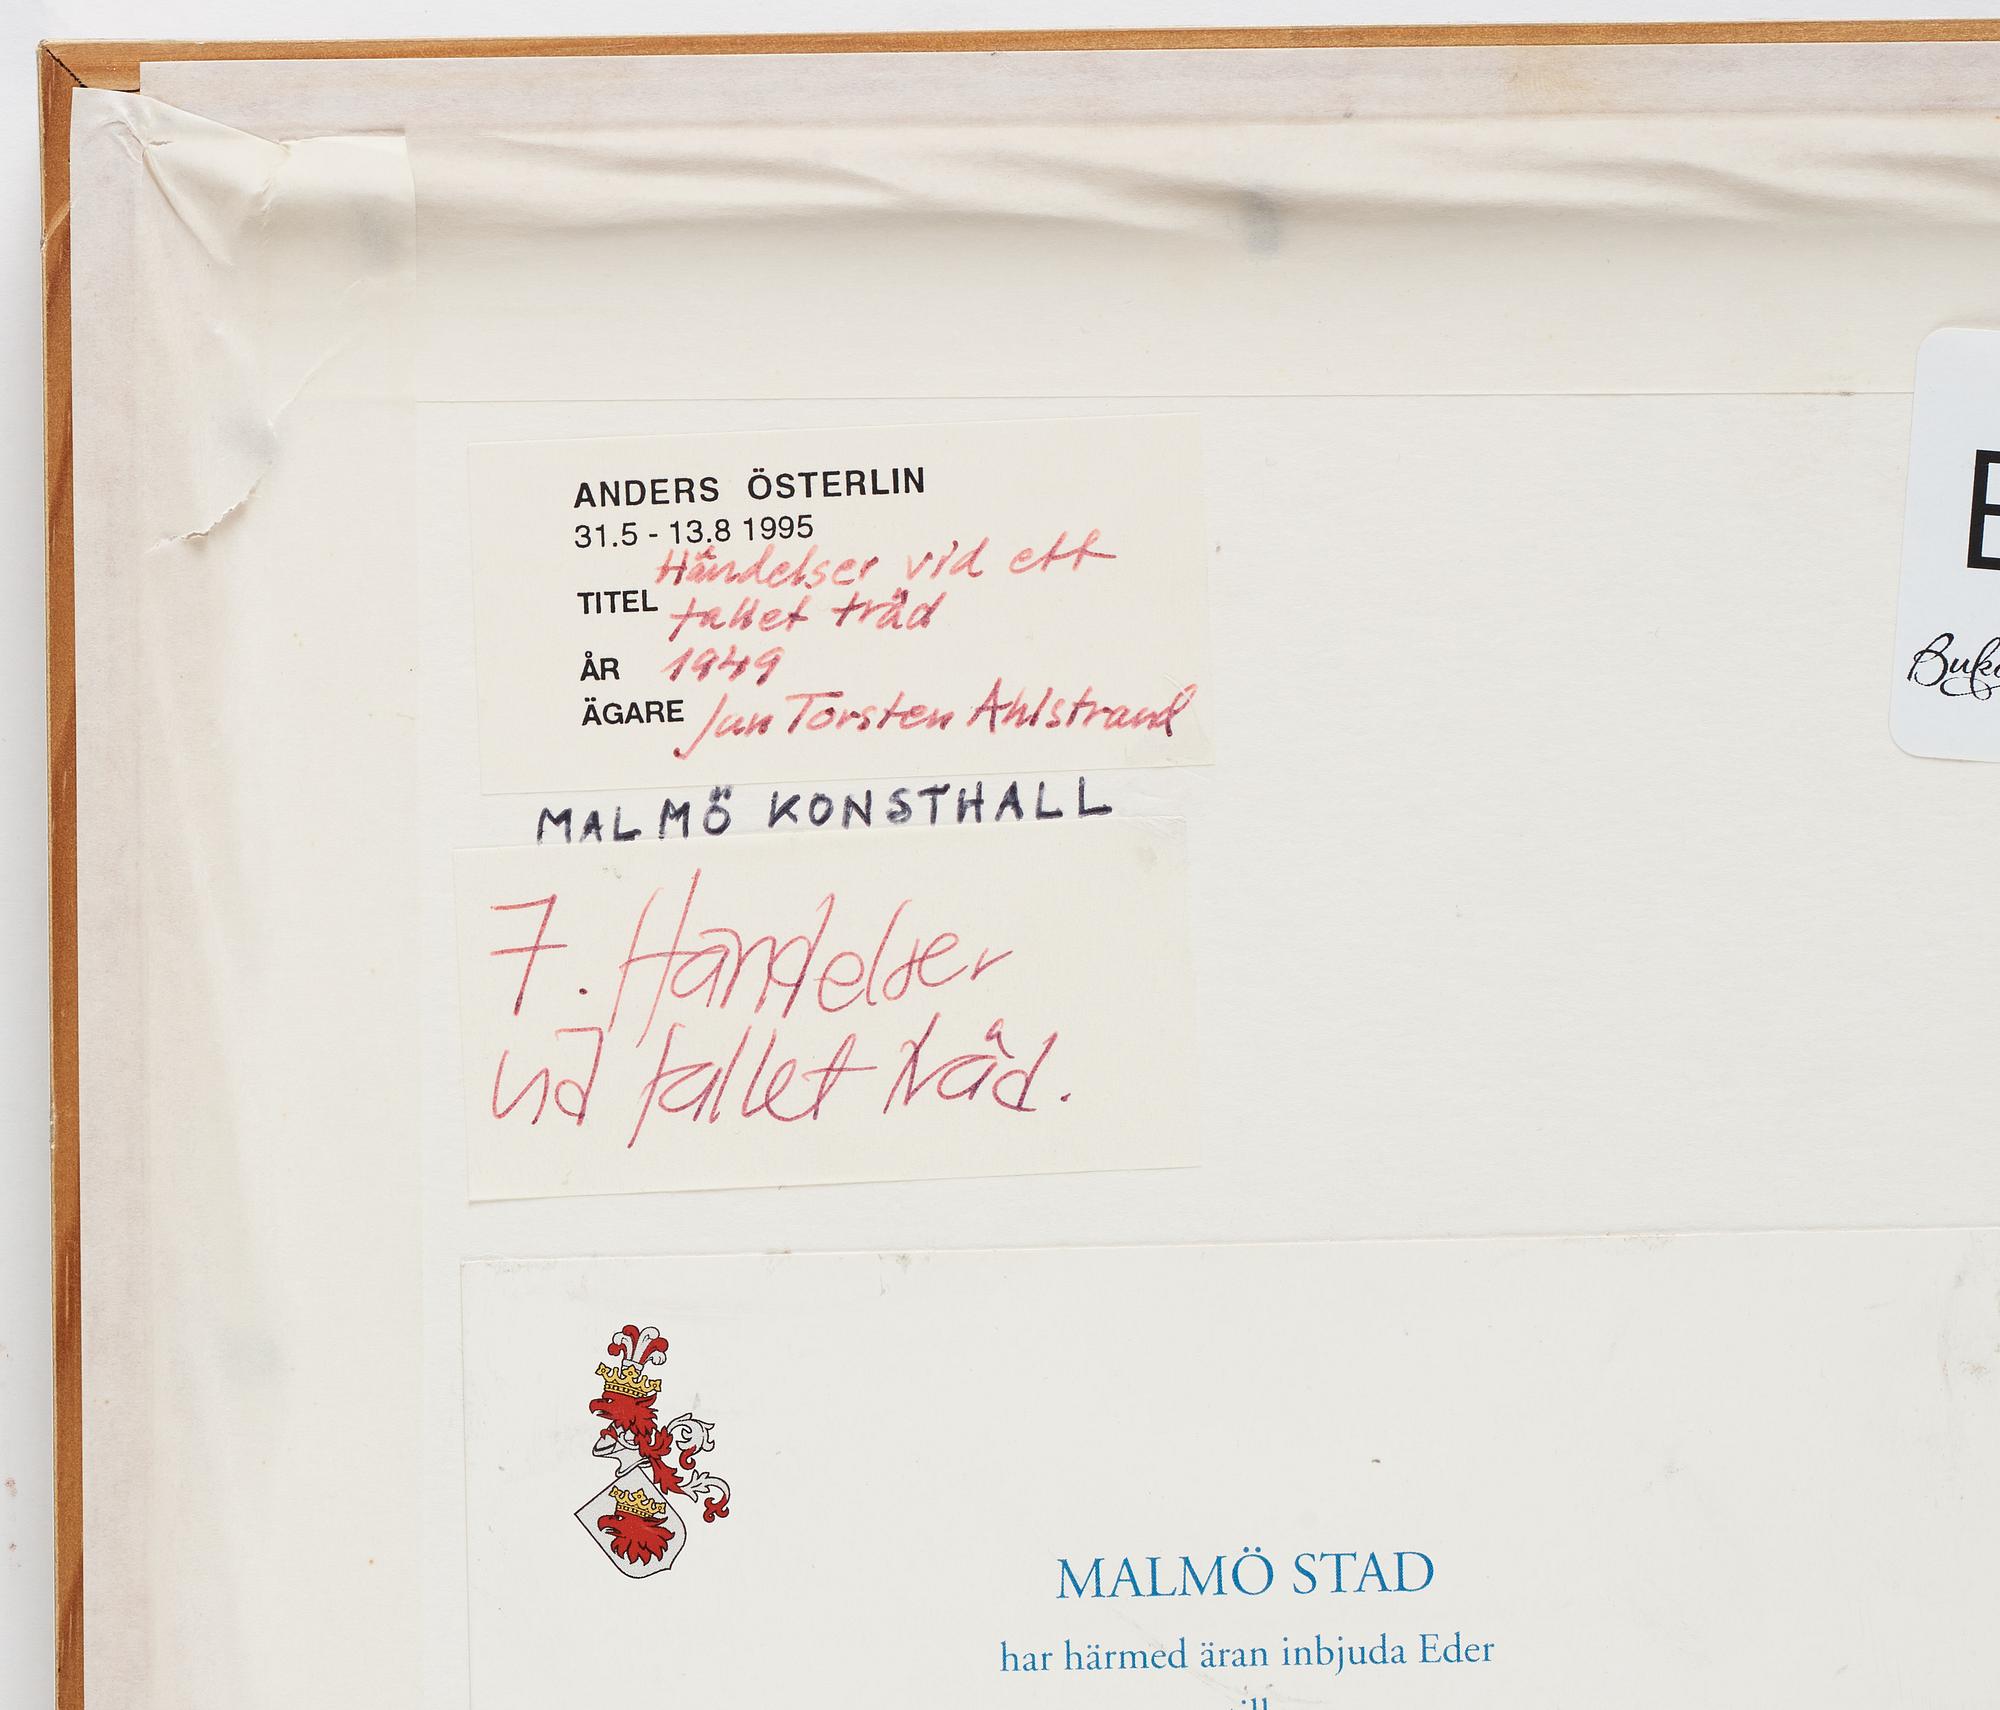 ANDERS ÖSTERLIN
31.5 - 13.8 1995
Händelser vid ett
TITEL fallet träd
ÅR 1949
ÄGARE Jan Torsten Ahlstrand
MALMÖ KONSTHALL
7. Händelser
vid fallet träd.
MALMÖ STAD
har härmed äran inbjuda Eder